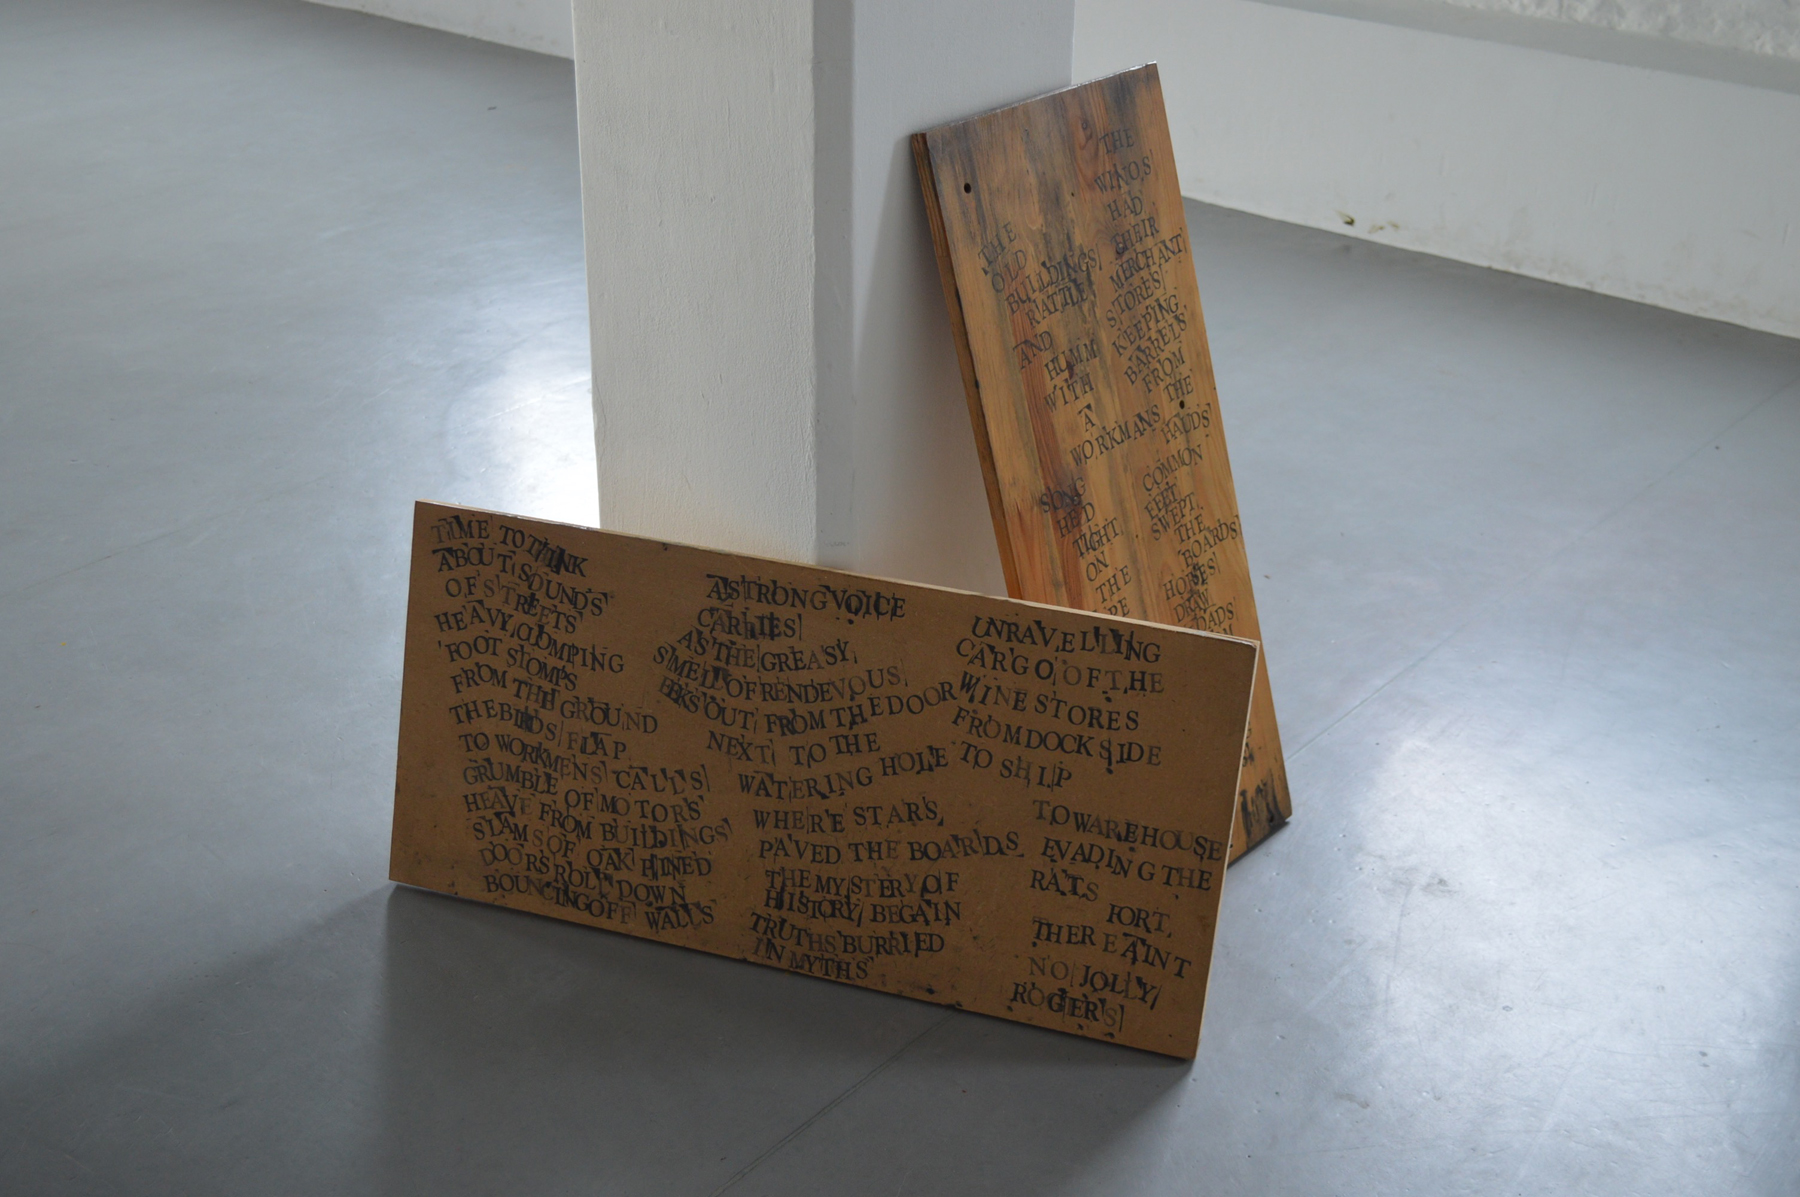 TIME TO THINK
ABOUT SOUNDS
OF STREETS
HEAVY CLOMPING
FOOT STOMPS
FROM THE GROUND
THE BIRDS FLAP
TO WORKMENS CALLS
GRUMBLE OF MOTORS
HEAVE FROM BUILDINGS
SLAMS OF OAK HINED
DOORS ROLL DOWN
BOUNCING OFF WALLS
A STRONG VOICE
CARRIES
AS THE GREASY
SMELL OF RENDEVOUS
EEKS OUT FROM THE DOOR
NEXT TO THE
WATERING HOLE
WHERE STARS
PAVED THE BOARDS
THE MYSTERY OF
HISTORY BEGAIN
TRUTHS BURRIED
IN MYTHS
UNRAVELLING
CARGO OF THE
WINE STORES
FROM DOCK SIDE
TO SHIP
TO WAREHOUSE
EVADING THE
RATS
FORT
THERE AINT
NO JOLLY
ROGERS
THE
OLD
BUILDINGS
RATTLE
AND
HUMM
WITH
A
WORKMANS
SONG
HE'D
TIGHT
ON
THE
THE
WINOS
HAD
THEIR
MERCHANT
STORES
KEEPING
BARRELS
FROM
THE
HAUDS
COMMON
FEET
SWEPT
THE
BOARDS
HORSES
DRAW